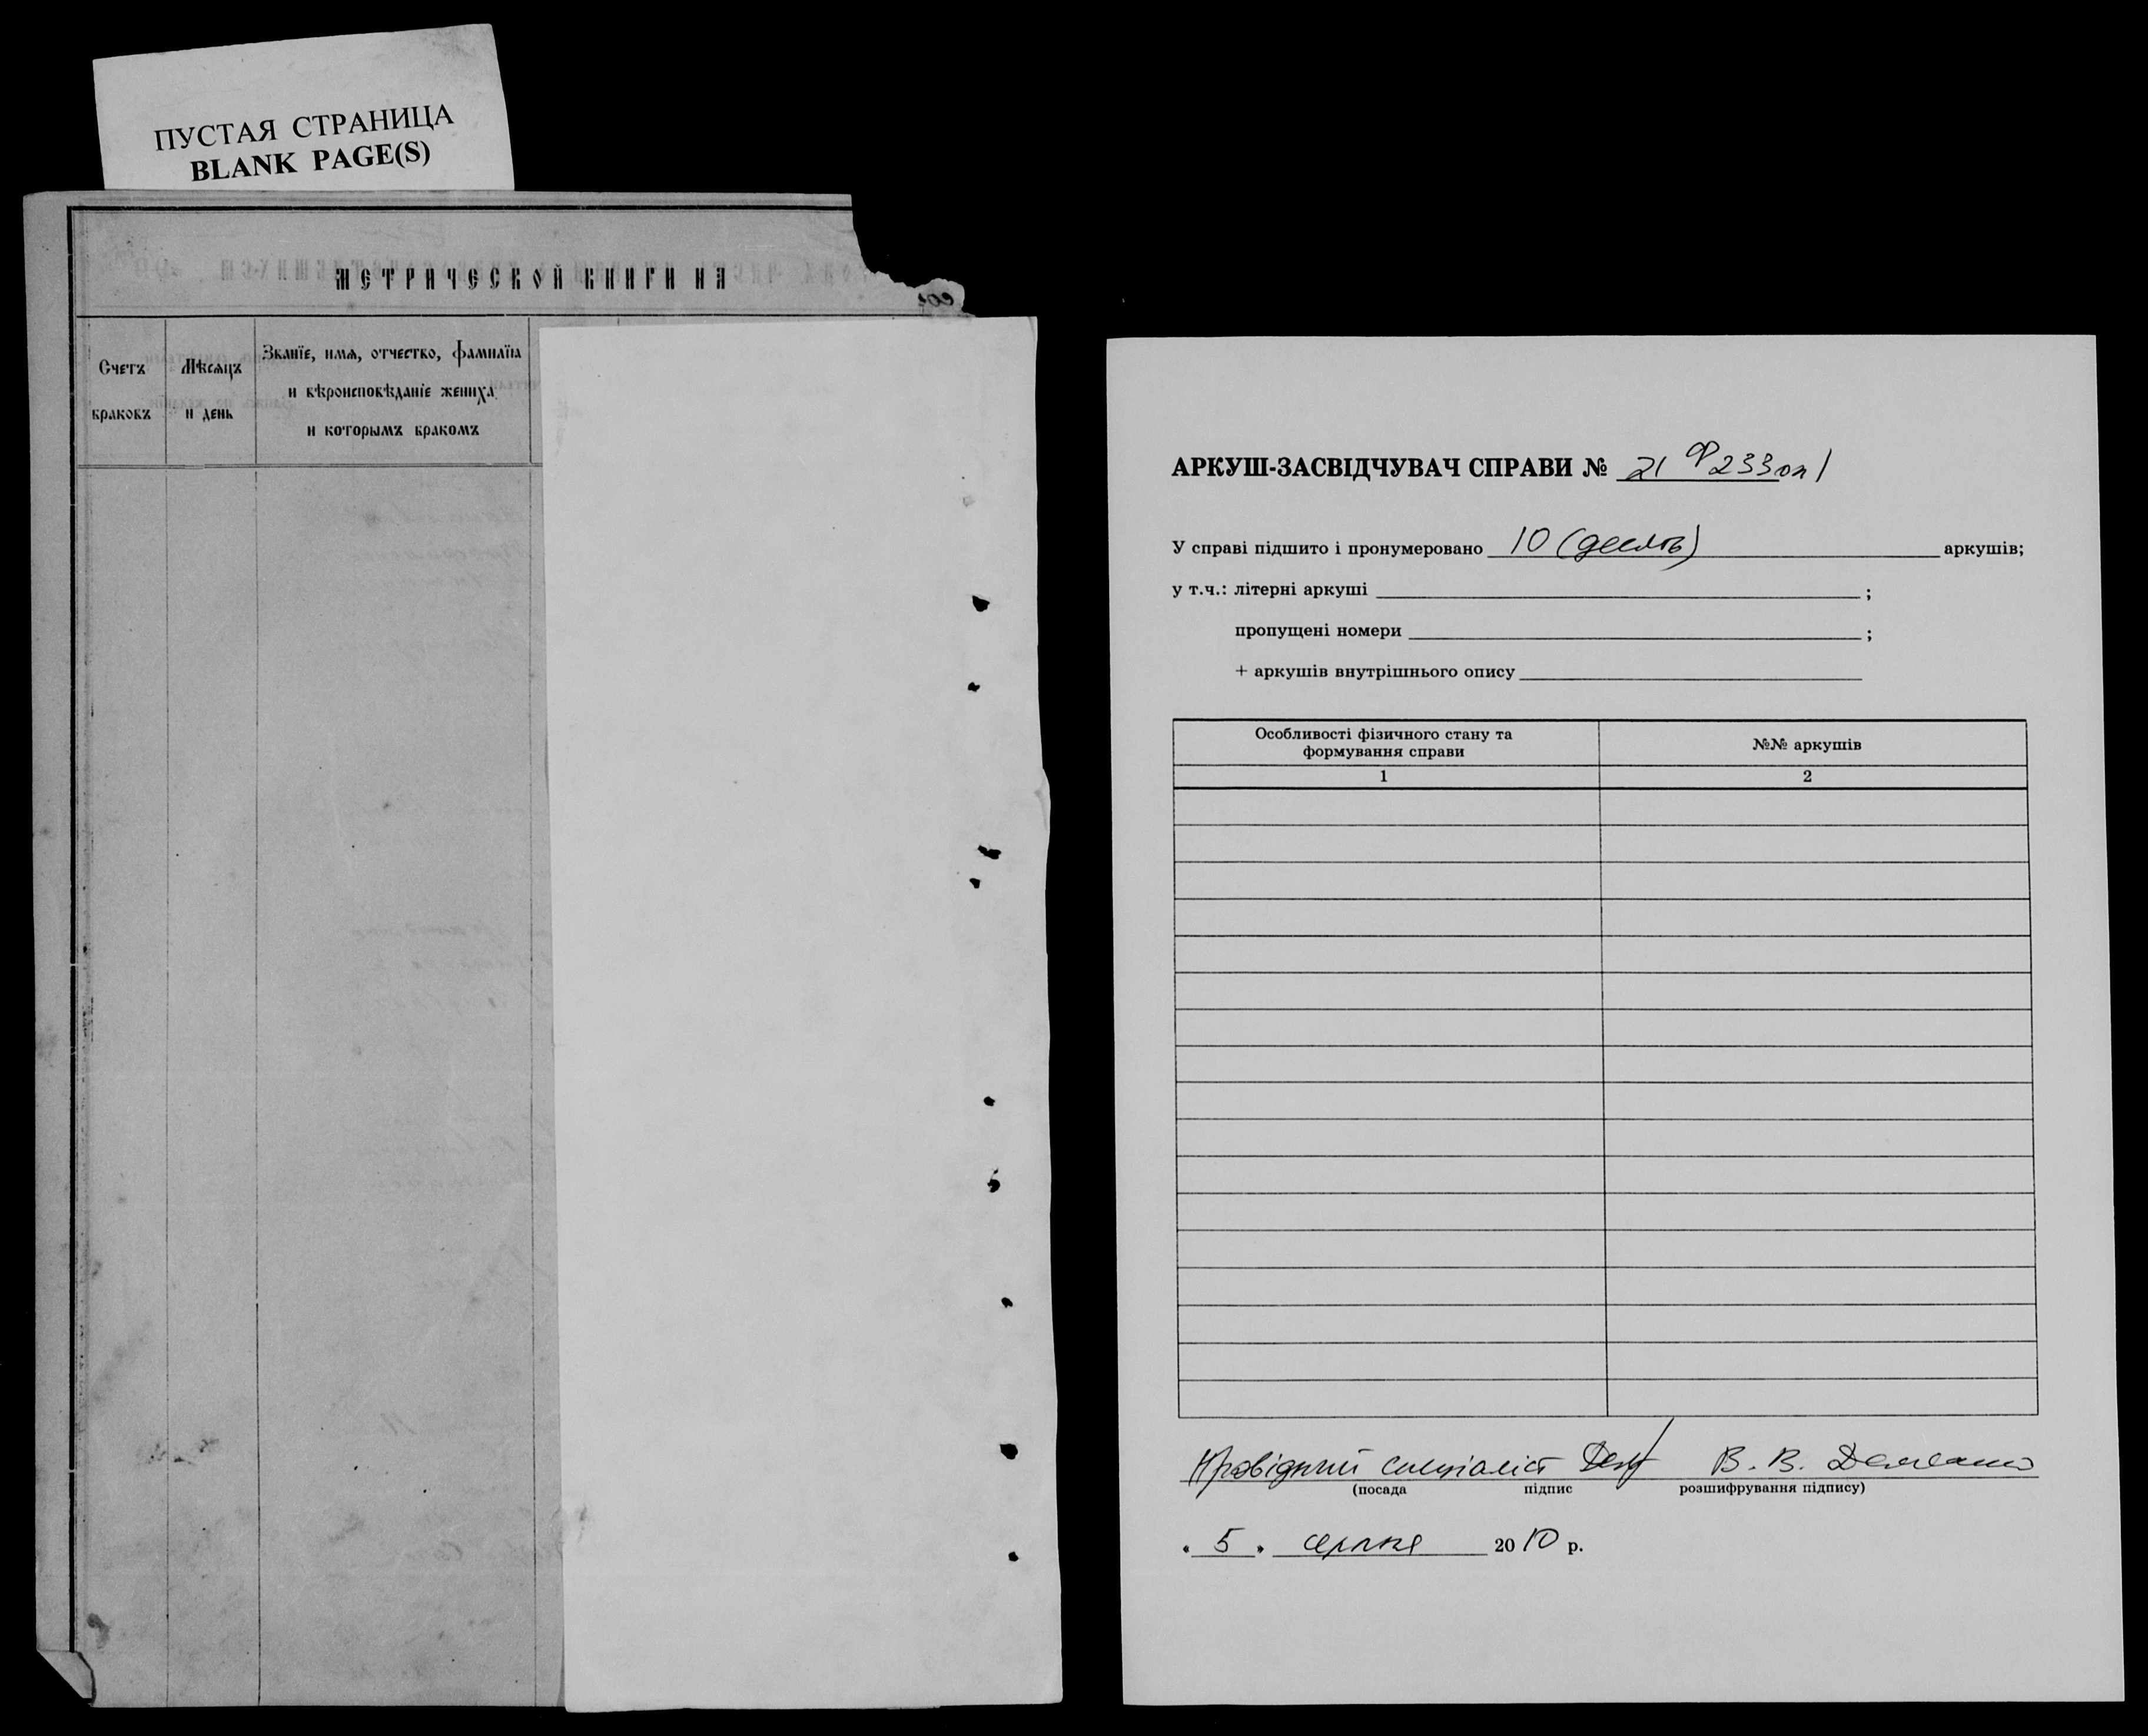 ПУСТАЯ СТРАНИЦА
BLANK PAGE(S)
МЕТРИЧЕСКОЙ КНИГИ НА
Счетъ
браковъ
Мѣсяцъ
и день
Званіе, имя, отчество, фамилїя
и вѣроисповѣданіе жениха
и которымъ бракомъ
АРКУШ-ЗАСВІДЧУВАЧ СПРАВИ № 21 Ф 233 оп 1
У справі підшито і пронумеровано 10 (десять) аркушів;
у т.ч.: літерні аркуші ;
пропущені номери ;
+ аркушів внутрішнього опису
Особливості фізичного стану та
формування справи
№№ аркушів
1 2
Провідний спеціаліст В. В.
(посада підпис розшифрування підпису)
" 5 " серпня 2010 р.